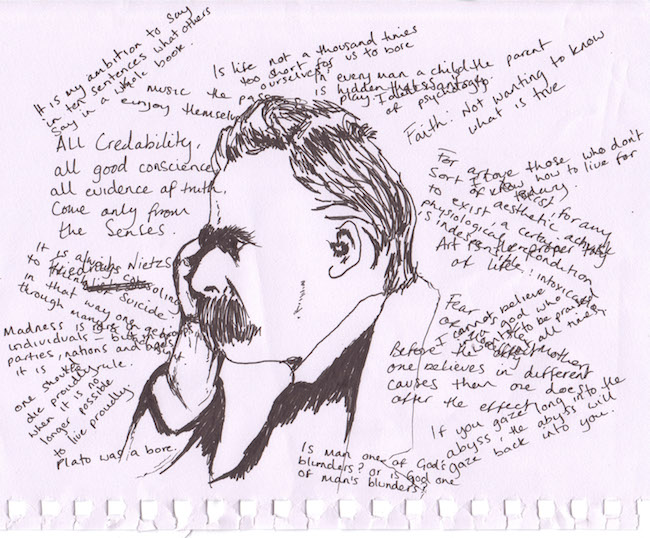 It is my ambition to say
in ten sentences what others
say in a whole book.
Is life not a thousand times
too short for us to bore
ourselves?
music the
enjoy themselves
in every man a child
is hidden that wants to
play.
the parent
of psychology.
Faith: Not wanting to know
what is true
All Credability,
all good conscience
all evidence of truth,
Come only from
the Senses.
For
those who don't
know how to live for
today.
For art to
exist, for any
sort of aesthetic
to exist a certain
physiological precondition
is indispensible, intoxication
Art
the proper
of life
It is always
to
Nietzs
of suicide
in that way one gets
through many
Madness is
individuals – but
parties, nations and ages
it is
rule.
one should
die proudly
when it is no
longer possible
to live proudly.
Plato was a bore.
Fear
mother
I cannot believe
god who
to be praised
all time
Before the effect
one believes in different
causes than one does
after the effect
If you gaze long into the
abyss, the abyss will
gaze back into you.
Is man one of God's
blunders? or is God one
of man's blunders?